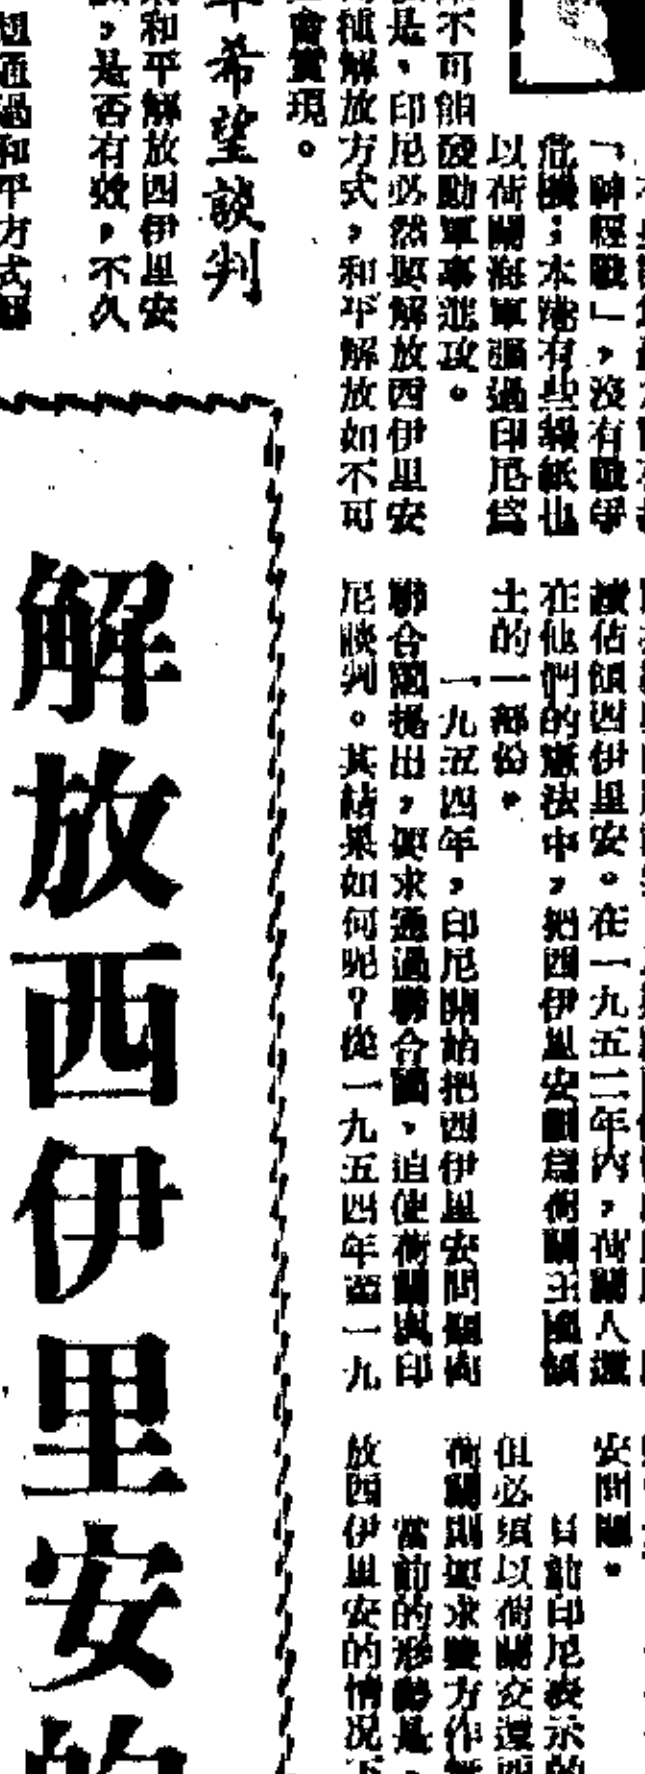 「神經戰」，沒有戰爭
危機；本港有些報紙也
以荷蘭海軍強過印尼為
不可能發動軍事進攻。
是，印尼必然要解放西伊里安
種解放方式，和平解放如不可
會實現。
希望談判
和平解放西伊里安
，是否有效，不久
想通過和平方式解
續佔領西伊里安。在一九五二年內，荷蘭人還
在他們的憲法中，把西伊里安劃為荷蘭王國領
土的一部份。
一九五四年，印尼開始把西伊里安問題向
聯合國提出，要求通過聯合國，迫使荷蘭與印
尼談判。其結果如何呢？從一九五四年至一九
安問題。
目前印尼表示的
但必須以荷蘭交還西
荷蘭則要求雙方作無
當前的形勢是，
放西伊里安的情况下
解放西伊里安的